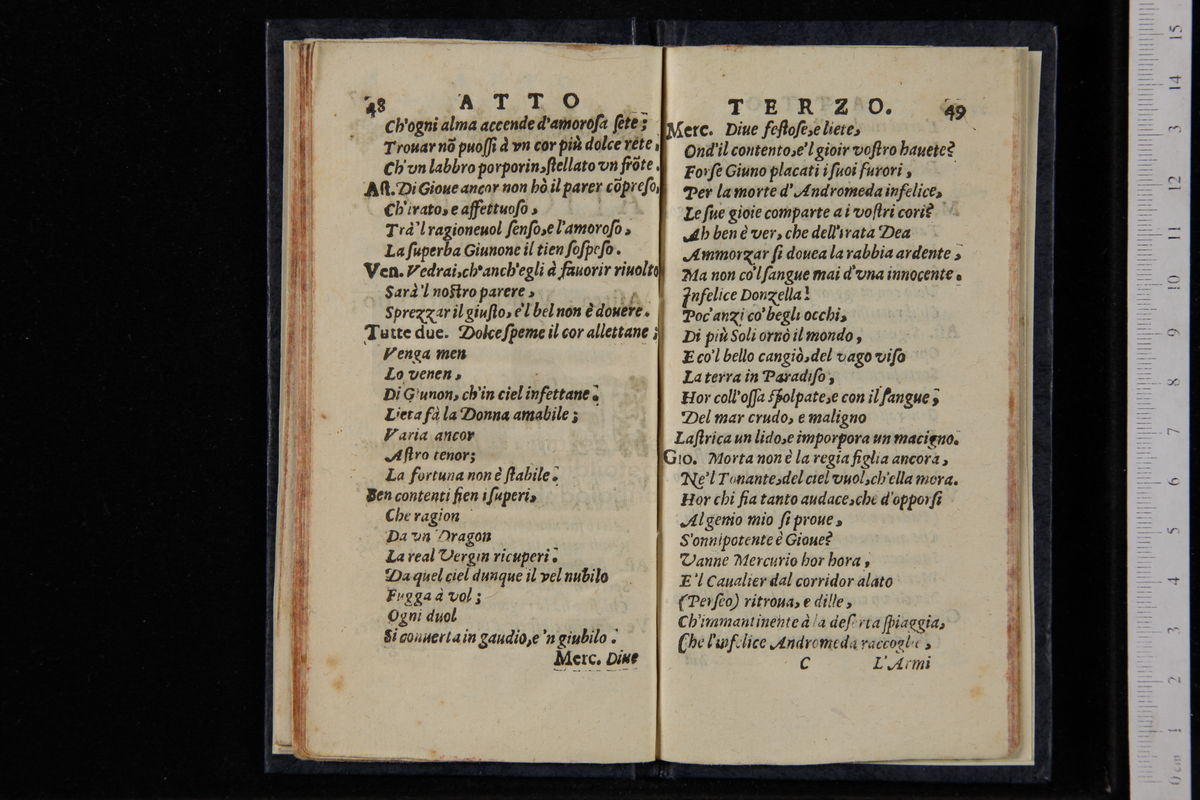 48 ATTO
Ch'ogni alma accende d'amorosa sete;
Trouar nō puossi à vn cor più dolce rete,
Ch'vn labbro porporin, stellato vn frōte.
Ast. Di Gioue ancor non hò il parer cōpreso,
Ch'irato, e affettuoso,
Trà'l ragioneuol senso, e l'amoroso,
La superba Giunone il tien sospeso.
Ven. Vedrai, ch'anch'egli à fauorir riuolto
Sarà'l nostro parere,
Sprezzar il giusto, e'l bel non è douere.
Tutte due. Dolce speme il cor allettane;
Venga men
Lo venen,
Di Giunon, ch'in ciel infettane.
Lieta fà la Donna amabile;
Varia ancor
Astro tenor;
La fortuna non è stabile.
Ben contenti sien i superi,
Che ragion
Da vn Dragon
La real Vergin ricuperi.
Da quel ciel dunque il vel nubilo
Fugga à vol;
Ogni duol
Si conuerta in gaudio, e 'n giubilo.
Merc. Diue
TERZO. 49
Merc. Diue festose, e liete,
Ond'il contento, e'l gioir vostro hauete?
Forse Giuno placati i suoi furori,
Per la morte d'Andromeda infelice,
Le sue gioie comparte a i vostri cori?
Ah ben è ver, che dell'irata Dea
Ammorzar si douea la rabbia ardente,
Ma non co'l sangue mai d'vna innocente.
Infelice Donzella!
Poc'anzi co' begli occhi,
Di più Soli ornò il mondo,
E co'l bello cangiò, del vago viso
La terra in Paradiso,
Hor coll'ossa spolpate, e con il sangue,
Del mar crudo, e maligno
Lastrica un lido, e imporpora un macigno.
Gio. Morta non è la regia figlia ancora,
Ne'l Tonante, del ciel vuol, ch'ella mora.
Hor chi fia tanto audace, che d'opporsi
Al genio mio si proue,
S'onnipotente è Gioue?
Vanne Mercurio hor hora,
E'l Caualier dal corridor alato
(Perseo) ritroua, e dille,
Ch'immantinente à la deserta spiaggia,
Che l'infelice Andromeda raccoglie,
C L'Armi
15
14
13
12
11
10
9
8
7
6
5
4
3
2
1
0 cm